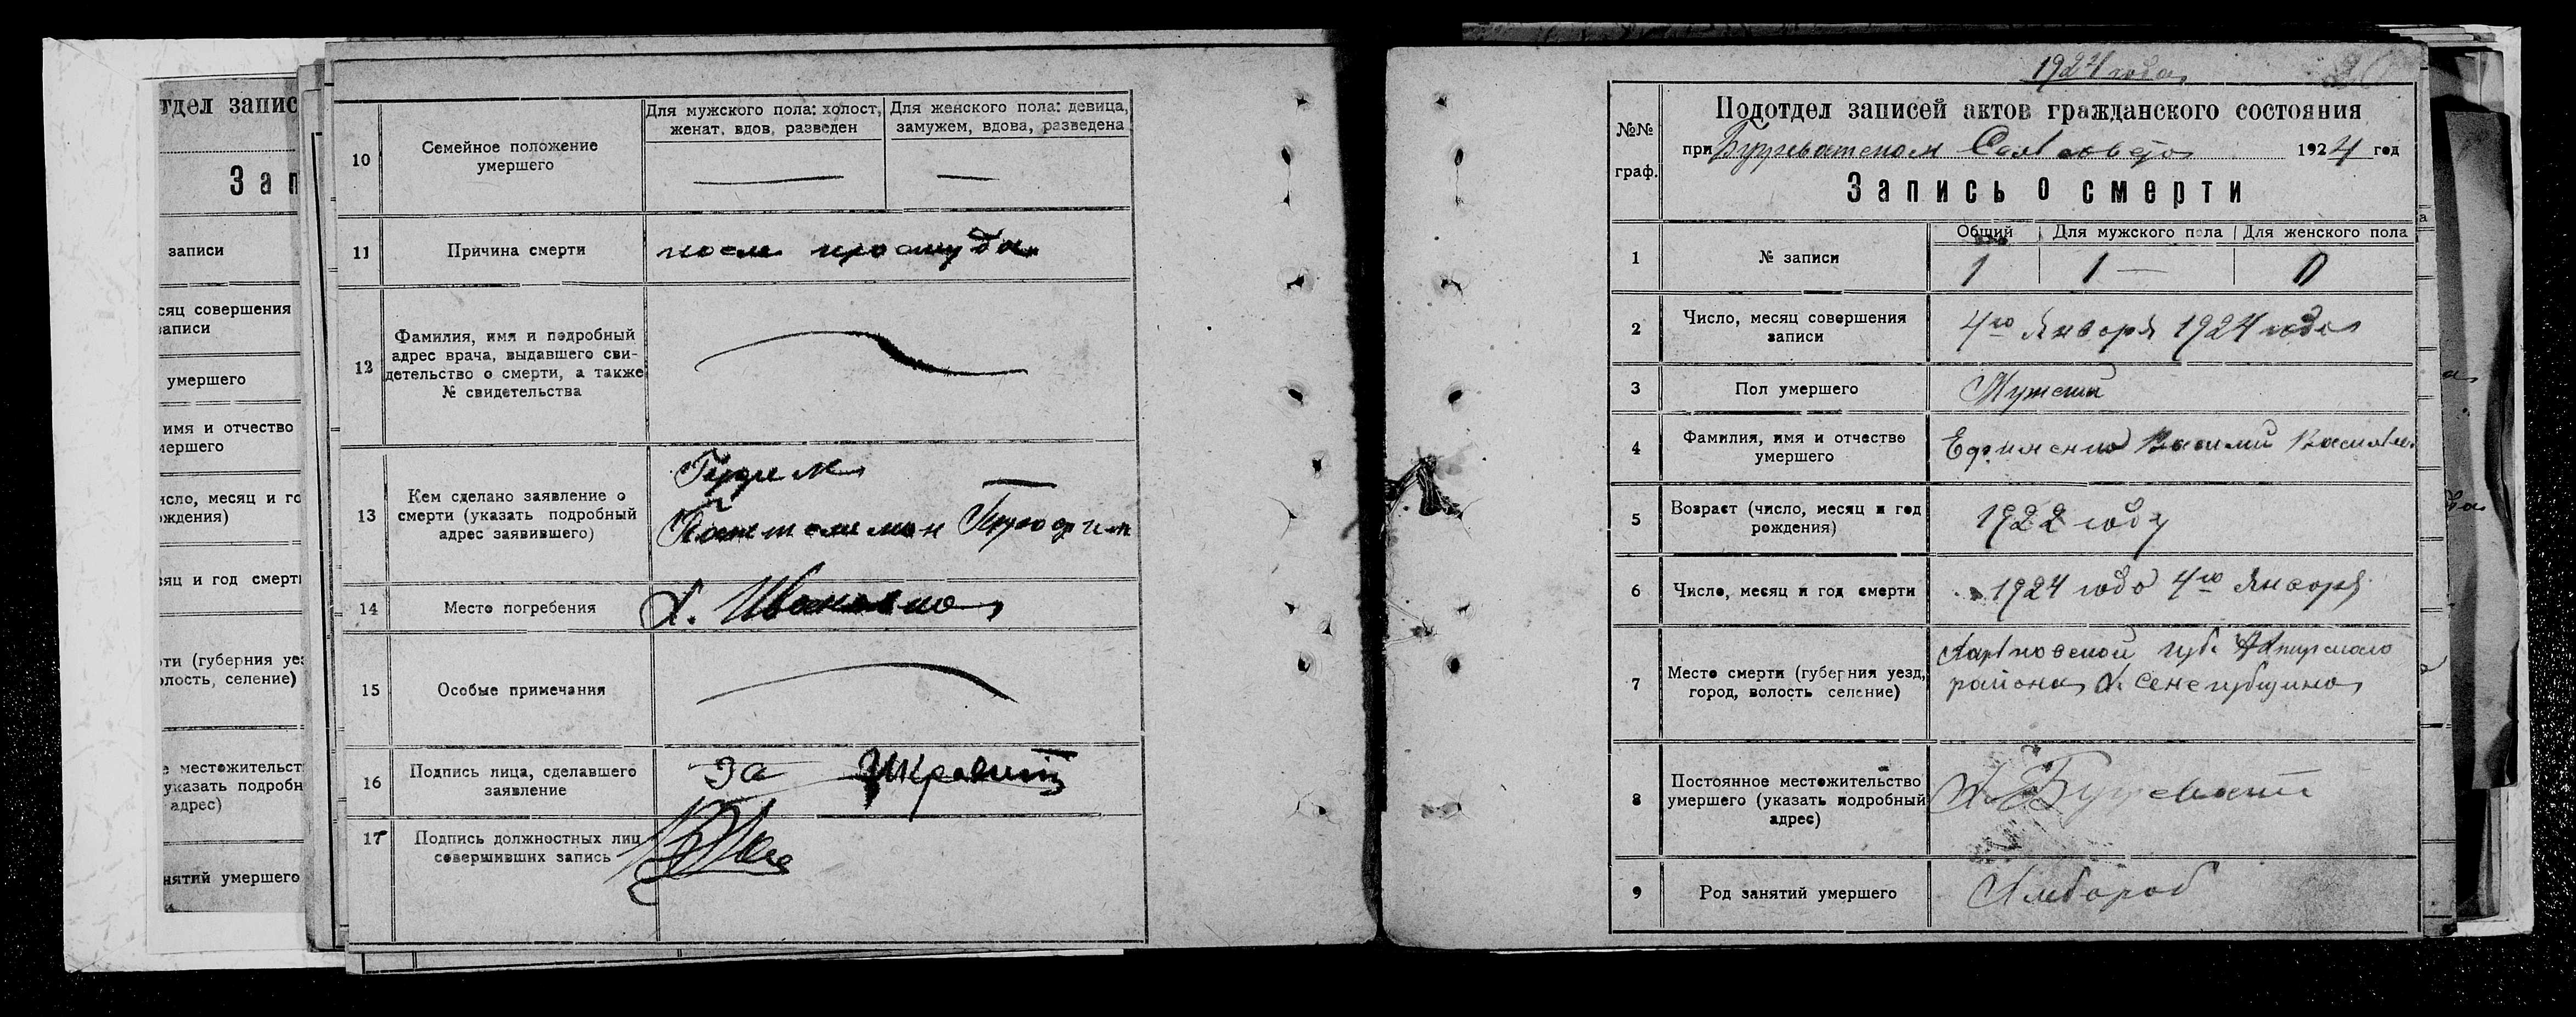 тдел запис
Зап
записи
сяц совершения
записи
умершего
имя и отчество
мершего
исло, месяц и го
ождения)
сяц и год смерти
рти (губерния уез
олость, селение)
е местожительст
указать подробн
адрес)
нятий умершего
10
Семейное положение
умершего
Для мужского пола: холост,
женат, вдов, разведен
Для женского пола: девица,
замужем, вдова, разведена
11
Причина смерти
после простуда
12
Фамилия, имя и подробный
адрес врача, выдавшего сви-
детельство о смерти, а также
№ свидетельства
13
Кем сделано заявление о
смерти (указать подробный
адрес заявившего)
Трофим
14
Место погребения
Х.
15
Особые примечания
16
Подпись лица, сделавшего
заявление
За
17
Подпись должностных лиц
совершивших запись
1924 года
№№
граф.
Подотдел записей актов гражданского состояния
при 1924 год
Запись о смерти
1
№ записи
Общий
Для мужского пола
Для женского пола
1 1 — 0
2
Число, месяц совершения
записи
4го Января 1924 года
3
Пол умершего
Мужской
4
Фамилия, имя и отчество
умершего
Ефименко Василий Василев
5
Возраст (число, месяц и год
рождения)
1922 году
6
Число, месяц и год смерти
1924 года 4го Января
7
Место смерти (губерния уезд,
город, волость селение)
губ.
района Х.
8
Постоянное местожительство
умершего (указать подробный
адрес)
Х.
9
Род занятий умершего
Хлебороб